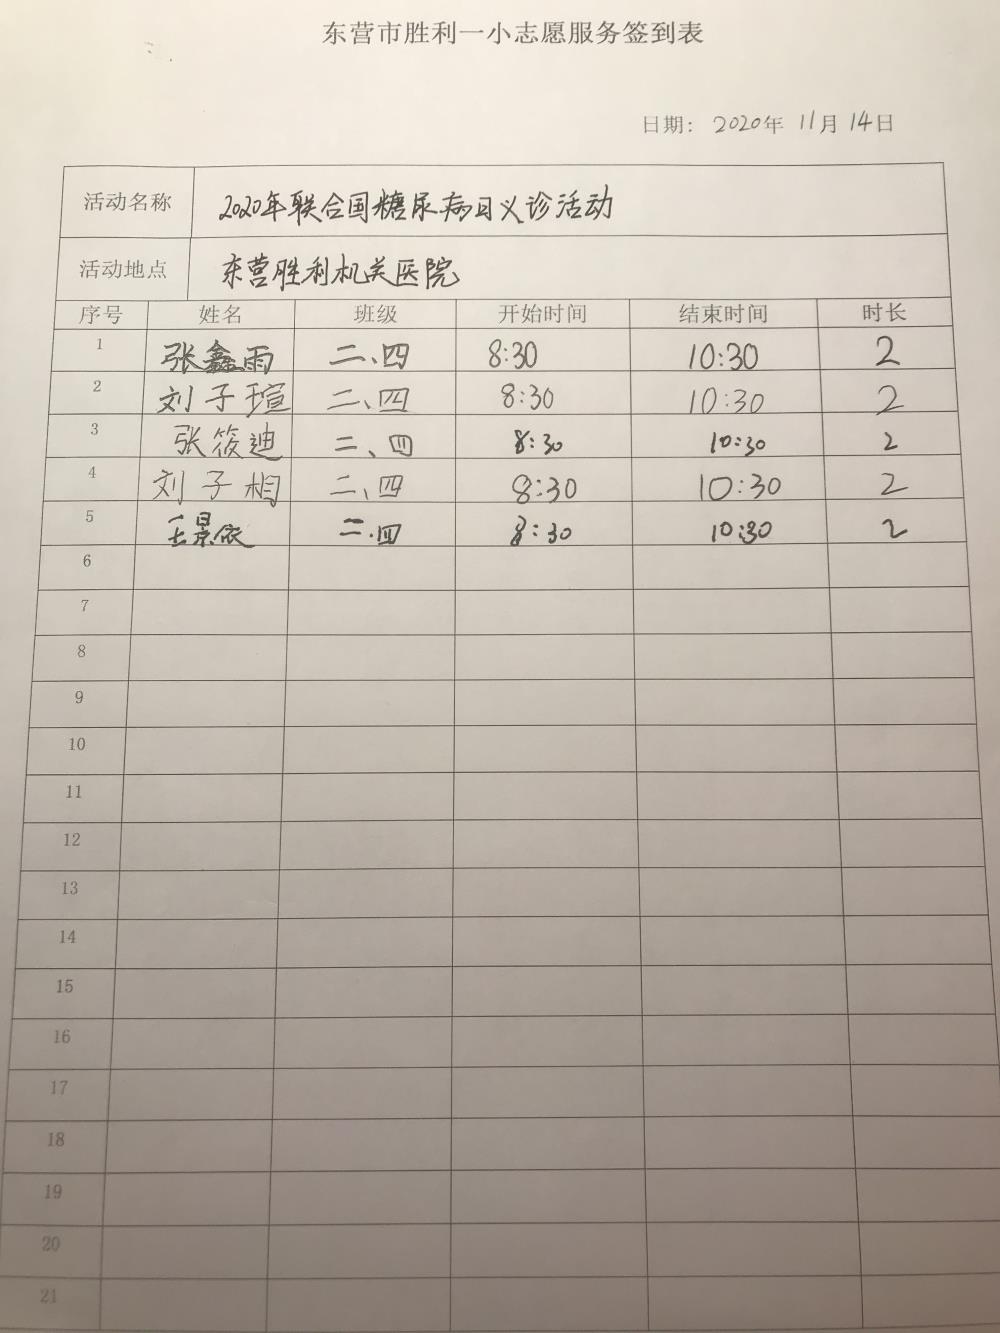 东营市胜利一小志愿服务签到表
日期: 2020年 11月 14日
活动名称 2020年联合国糖尿病日义诊活动
活动地点 东营胜利机关医院
序号 姓名 班级 开始时间 结束时间 时长
1 张鑫雨 二、四 8:30 10:30 2
2 刘子瑄 二、四 8:30 10:30 2
3 张筱迪 二、四 8:30 10:30 2
4 刘子相 二、四 8:30 10:30 2
5 王景依 二.四 8:30 10:30 2
6
7
8
9
10
11
12
13
14
15
16
17
18
19
20
21